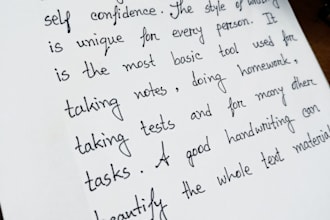 self confidence. The style of
is unique for every person. It
is the most basic tool used for
taking notes, doing homework,
taking tests and for many other
tasks. A good handwriting can
beautify the whole text material